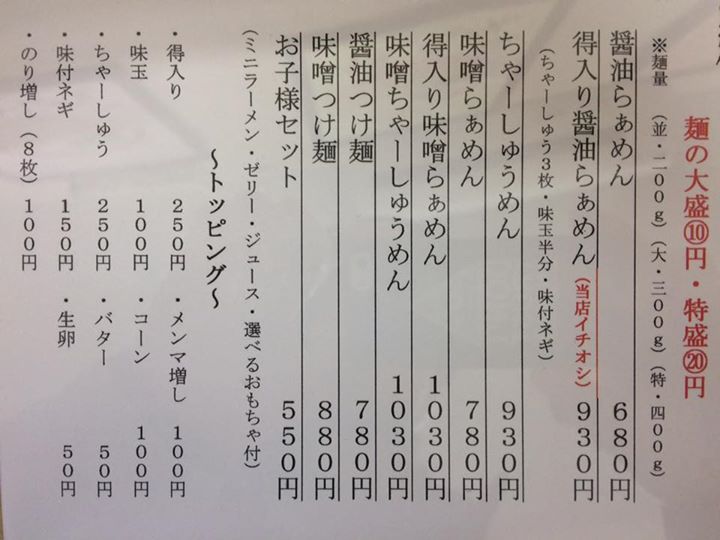 麺の大盛⑩円・特盛⑳円
※麺量 (並・二00g)(大・三00g)(特・四00g)
醤油らぁめん 680円
得入り醤油らぁめん(当店イチオシ) 930円
(ちゃーしゅう3枚・味玉半分・味付ネギ)
ちゃーしゅうめん 930円
味噌らぁめん 780円
得入り味噌らぁめん 1030円
味噌ちゃーしゅうめん 1030円
醤油つけ麺 780円
味噌つけ麺 880円
お子様セット 550円
(ミニラーメン・ゼリー・ジュース・選べるおもちゃ付)
~トッピング~
・得入り 250円 ・メンマ増し 100円
・味玉 100円 ・コーン 100円
・ちゃーしゅう 250円 ・バター 50円
・味付ネギ 150円 ・生卵 50円
・のり増し(8枚) 100円